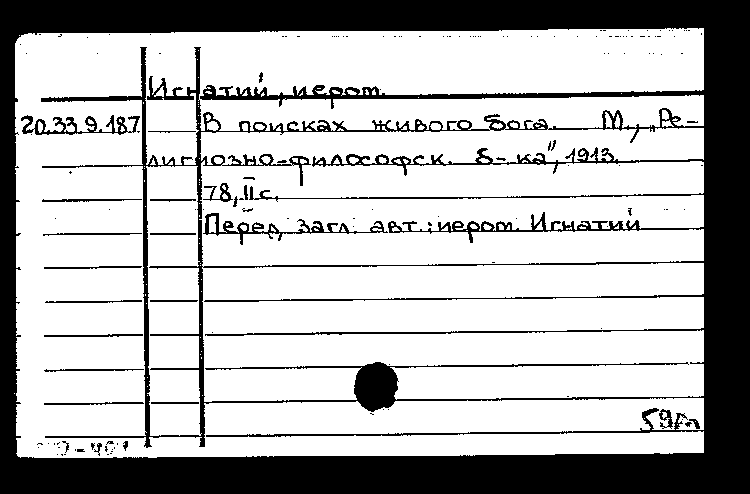 Игнатий, иером.
20.33.9.187 В поисках живого бога. М., „Ре-
лигиозно-философск. б-ка", 1913.
78, II с.
Перед загл. авт.: иером. Игнатий